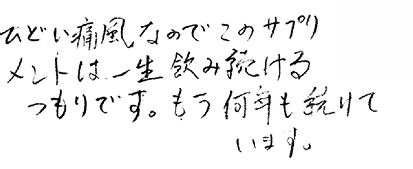 ひどい痛風なのでこのサプリ
メントは一生飲み続ける
つもりです。もう何年も続けて
います。